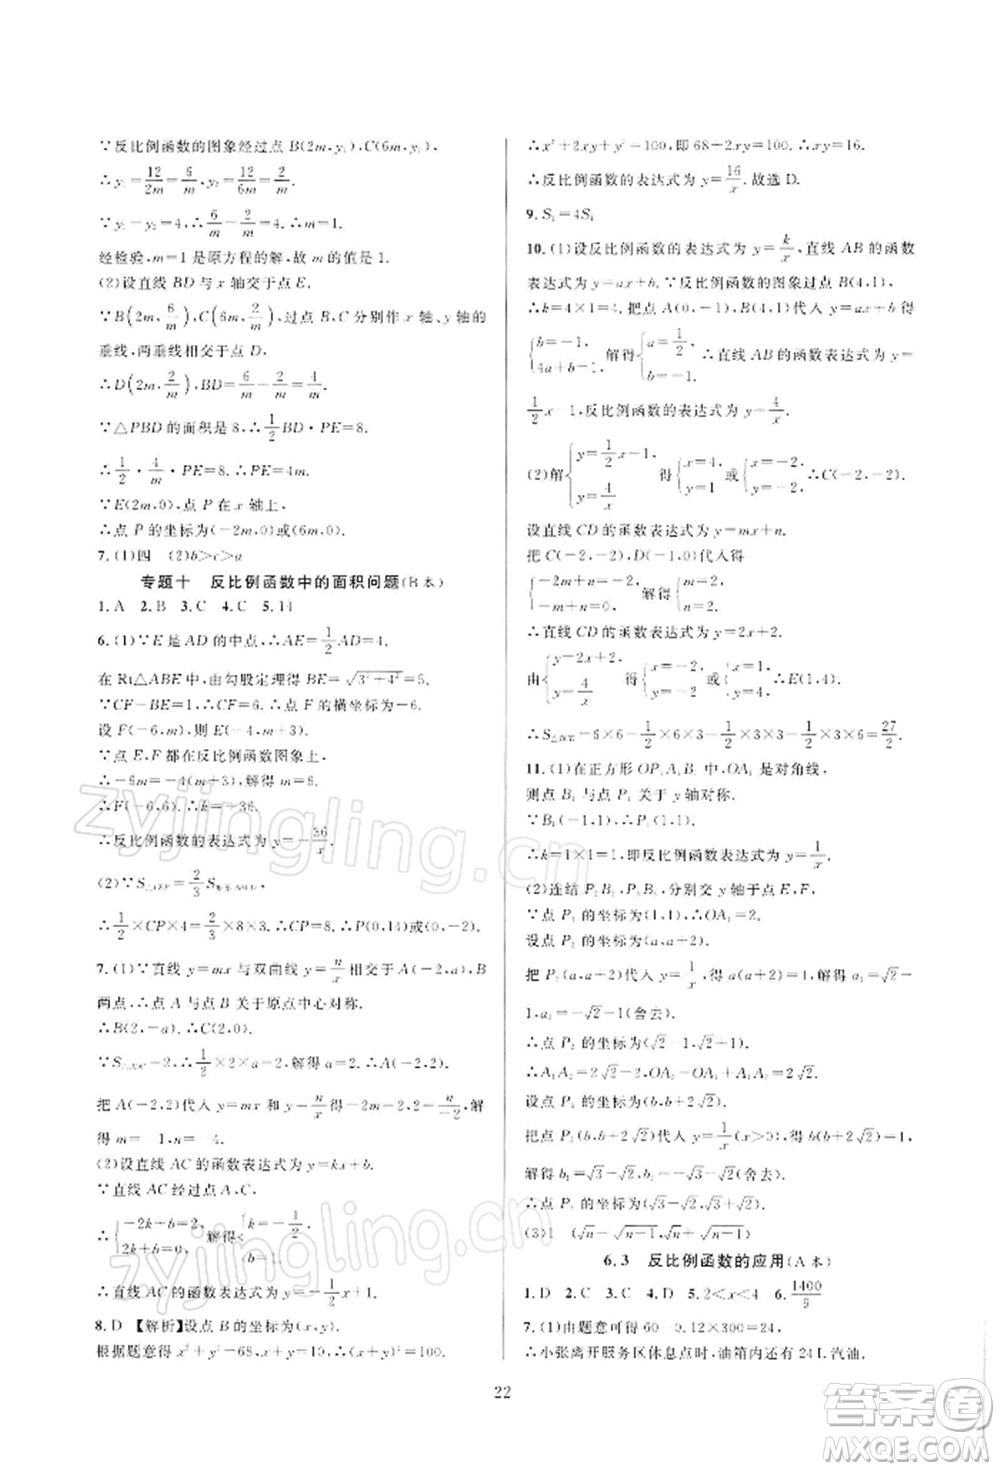 ∵反比例函数的图象经过点 B(2m,y₁),C(6m,y₂),
∴y₁=12/2m=6/m,y₂=12/6m=2/m.
∵y₁-y₂=4,∴6/m-2/m=4.∴m=1.
经检验,m=1是原方程的解,故 m 的值是1.
(2)设直线 BD 与 x 轴交于点 E.
∵B(2m,6/m),C(6m,2/m),过点 B、C 分别作 x 轴、y 轴的
垂线,两垂线相交于点 D,
∴D(2m,2/m),BD=6/m-2/m=4/m.
∵△PBD 的面积是8,∴1/2BD·PE=8.
∴1/2·4/m·PE=8.∴PE=4m.
∵E(2m,0),点 P 在 x 轴上,
∴点 P 的坐标为(-2m,0)或(6m,0).
7.(1)四 (2)b>c>a
专题十 反比例函数中的面积问题(B本)
1.A 2.B 3.C 4.C 5.14
6.(1)∵E 是 AD 的中点,∴AE=1/2AD=4.
在 Rt△ABE 中,由勾股定理得 BE=√(3²+4²)=5.
∵CF-BE=1,∴CF=6.∴点 F 的横坐标为-6.
设 F(-6,m),则 E(-4,m+3).
∵点 E,F 都在反比例函数图象上,
∴-6m=-4(m+3),解得 m=6.
∴F(-6,6),∴k=-36.
∴反比例函数的表达式为 y=-36/x.
(2)∵S =2/3S ,
∴1/2×CP×4=2/3×8×3.∴CP=8.∴P(0,14)或(0,-2).
7.(1)∵直线 y=mx 与双曲线 y=n/x 相交于 A(-2,a),B
两点,∴点 A 与点 B 关于原点中心对称.
∴B(2,-a).∴C(2,0).
∵S =2,∴1/2×2×a=2,解得 a=2.∴A(-2,2).
把 A(-2,2)代入 y=mx 和 y=n/x 得-2m=2,2=n/-2,解
得 m=-1,n=-4.
(2)设直线 AC 的函数表达式为 y=kx+b.
∵直线 AC 经过点 A、C,
∴{-2k+b=2, 2k+b=0. 解得{k=-1/2, b=1.
∴直线 AC 的函数表达式为 y=-1/2x+1.
8.D 【解析】设点 B 的坐标为(x,y).
根据题意得 x²+y²=68,(x+y)²=100.
∴x²+2xy+y²=100,即 68+2xy=100.∴xy=16.
∴反比例函数的表达式为 y=16/x.故选 D.
9.S₁=4S₄
10.(1)设反比例函数的表达式为 y=k/x,直线 AB 的函数
表达式为 y=ax+b.∵反比例函数的图象过点 B(4,1),
∴k=4×1=4.把点 A(0,-1),B(4,1)代入 y=ax+b 得
{b=-1, 4a+b=1. 解得{a=1/2, b=-1. ∴直线 AB 的函数表达式为 y=
1/2x-1,反比例函数的表达式为 y=4/x.
(2)解{y=1/2x-1, y=4/x 得{x=4, y=1 或{x=-2, y=-2. ∴C(-2,-2).
设直线 CD 的函数表达式为 y=mx+n.
把 C(-2,-2),D(-1,0)代入得
{-2m+n=-2, -m+n=0. 解得{m=2, n=2.
∴直线 CD 的函数表达式为 y=2x+2.
由{y=2x+2, y=4/x 得{x=1, y=4 或{x=-2, y=-2. ∴E(1,4).
∴S =6×6-1/2×6×3-1/2×3×3-1/2×3×6=27/2.
11.(1)在正方形 OP₁A₁B₁ 中,OA₁ 是对角线,
则点 B₁ 与点 P₁ 关于 y 轴对称.
∵B₁(-1,1),∴P₁(1,1).
∴k=1×1=1,即反比例函数表达式为 y=1/x.
(2)连结 P₂B₂、P₃B₃,分别交 y 轴于点 E、F,
∵点 P₁ 的坐标为(1,1),∴OA₁=2.
设点 P₂ 的坐标为(a,a+2).
把 P₂(a,a+2)代入 y=1/x,得 a(a+2)=1,解得 a₁=√2-
1,a₂=-√2-1(舍去).
∴点 P₂ 的坐标为(√2-1,√2+1).
∴A₁A₂=2√2-2,∴OA₂=OA₁+A₁A₂=2√2.
设点 P₃ 的坐标为(b,b+2√2),
把点 P₃(b,b+2√2)代入 y=1/x(x>0),得 b(b+2√2)=1,
解得 b₁=√3-√2,b₂=-√3-√2(舍去).
∴点 P₃ 的坐标为(√3-√2,√3+√2).
(3)1 (√n-√n-1,√n+√n-1)
6.3 反比例函数的应用(A本)
1.D 2.C 3.C 4.D 5.2<x<4 6.1400/9
7.(1)由题意可得 60-0.12×300=24,
∴小张离开服务区休息点时,油箱内还有 24 L 汽油.
22
zyjingling.com
zyjingling.com
答案卷
MXQE.COM